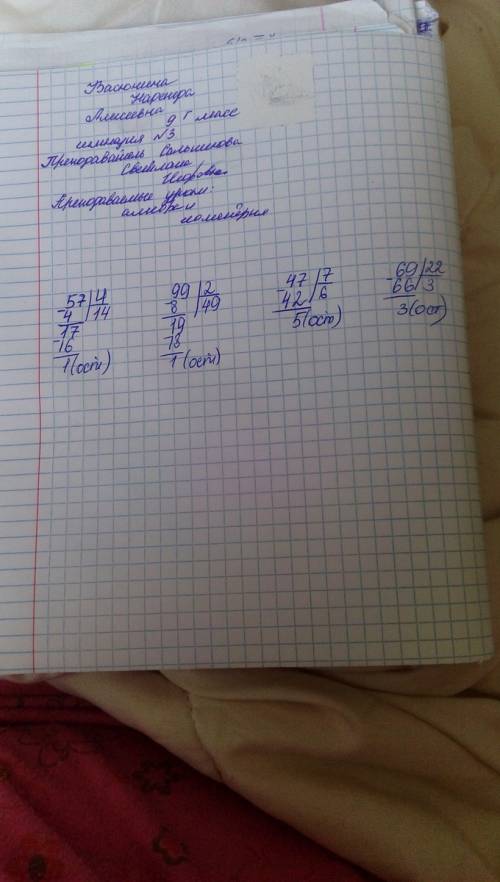 Васюнина
Алисевна
9 г класс
гимназия №3
Преподаватель
Светлана
Преподаваемые уроки:
алгебра и
геометрия
57 | 4
- 4 | 14
17
- 16
1 (ост)
99 | 2
- 8 | 49
19
- 18
1 (ост)
47 | 7
- 42 | 6
5 (ост)
69 | 22
- 66 | 3
3 (ост)